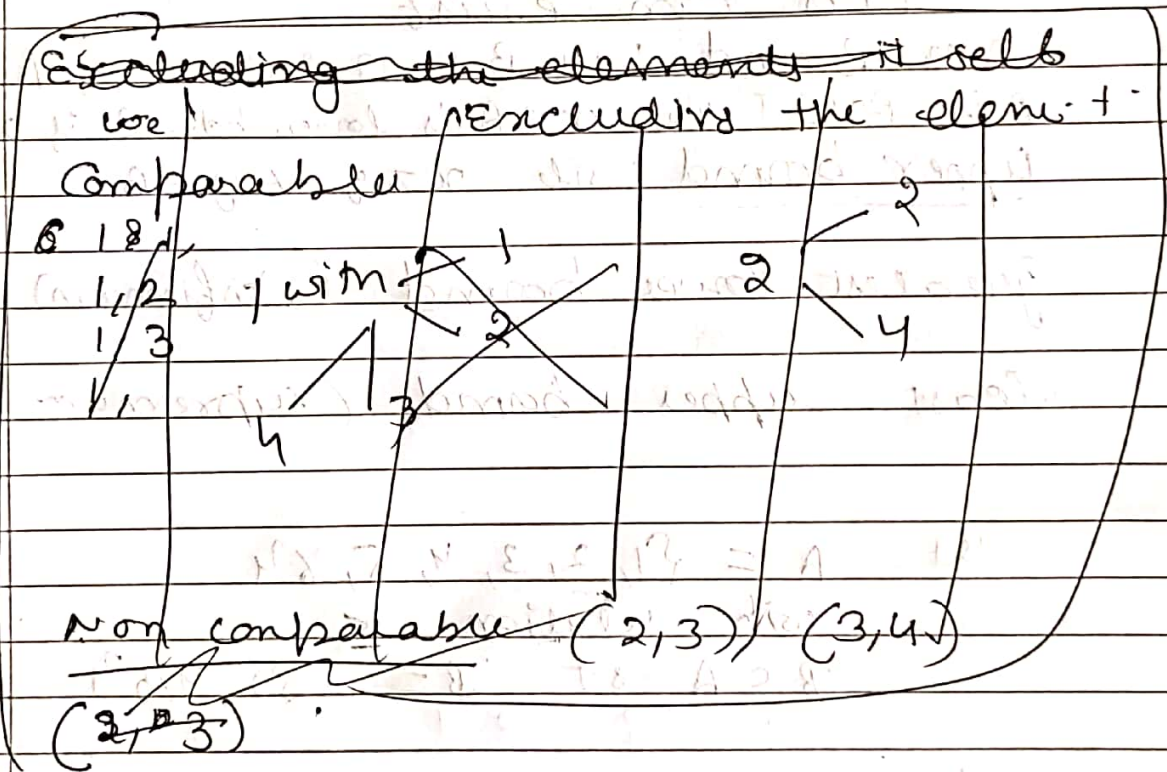 Excluding the elements it self
we Excluding the element
Comparable
1, 2
1 3
1 with 1
2
4 3
2 2
4
Non comparable (2,3), (3,4)
(2, 3)